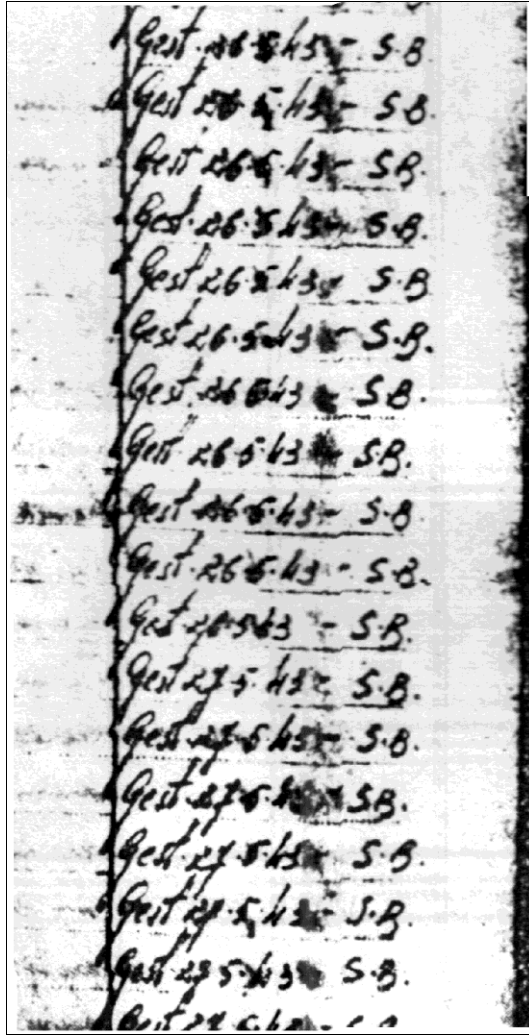 Gest 26·5·43 - S.B.
Gest 26·5·43 - S.B.
Gest 26·5·43 - S.B.
Gest·26·5·43 - S.B.
Gest 26·5·43 - S.B.
Gest 26·5·43 - S.B.
Gest 26 5 43 - S.B.
Gest 26·5·43 - S.B.
Gest 26·5·43 - S.B.
Gest·26·5·43 - S.B.
Gest 26·5 43 - S.B.
Gest 27·5·43 - S.B.
Gest·27·5·43 - S.B.
Gest·27·5·43 - S.B.
Gest·27·5·43 - S.B.
Gest·27·5·43 - S.B.
Gest 27 5·43 S.B.
Gest 27 5